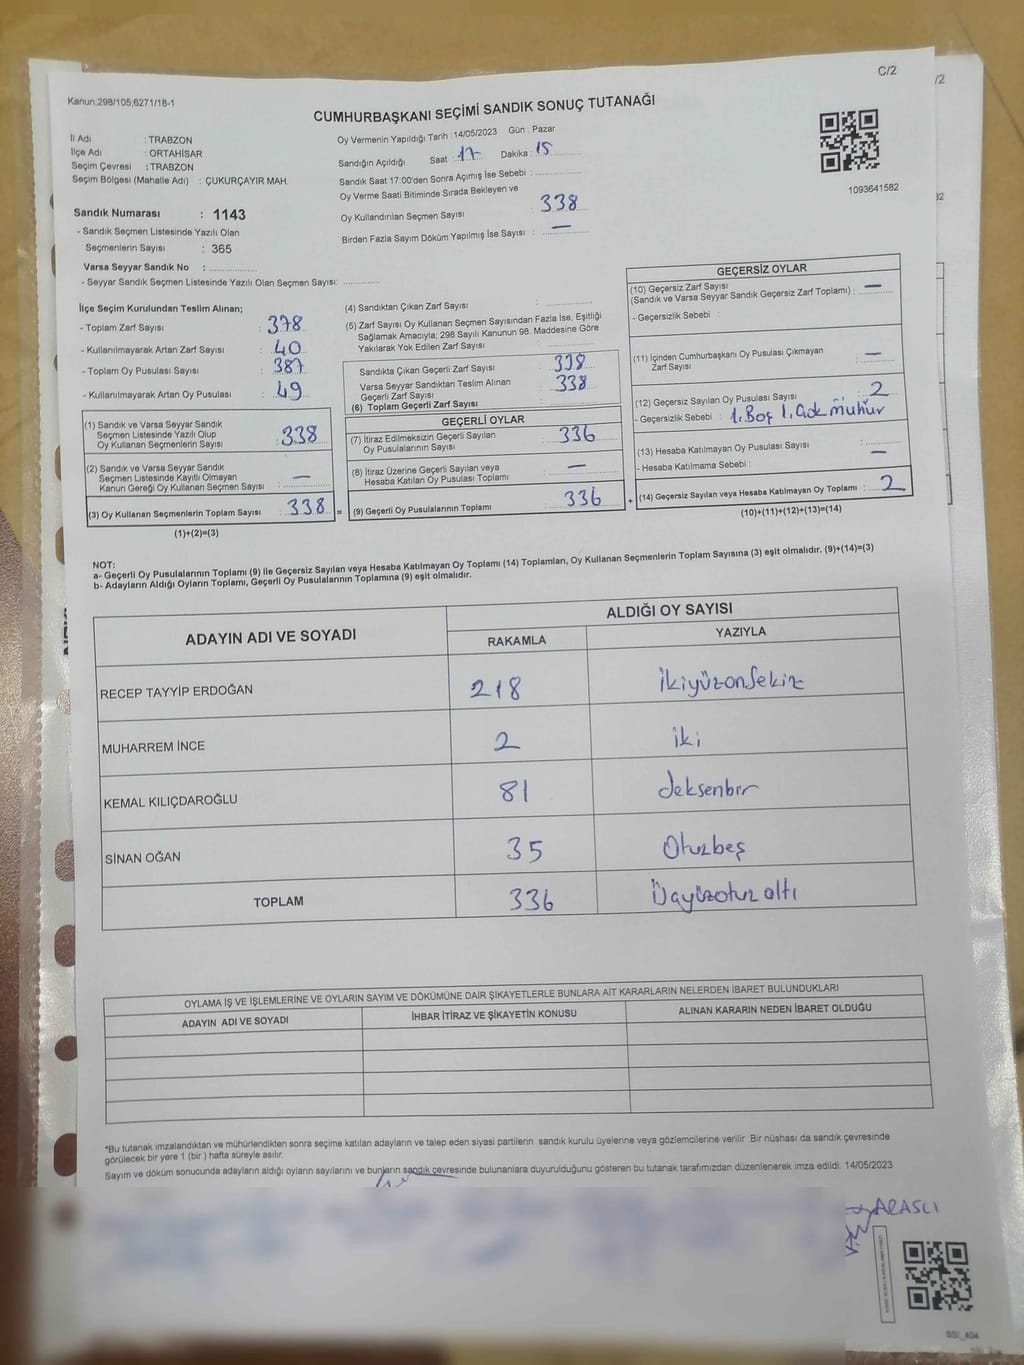 C/2
/2
Kanun,298/105,6271/18-1
CUMHURBAŞKANI SEÇİMİ SANDIK SONUÇ TUTANAĞI
İl Adı : TRABZON
İlçe Adı : ORTAHİSAR
Seçim Çevresi : TRABZON
Seçim Bölgesi (Mahalle Adı) : ÇUKURÇAYIR MAH.
Oy Vermenin Yapıldığı Tarih : 14/05/2023 Gün : Pazar
Sandığın Açıldığı Saat : 17 Dakika : 15
Sandık Saat 17:00'den Sonra Açımış İse Sebebi :
Oy Verme Saati Bitiminde Sırada Bekleyen ve
Oy Kullandırılan Seçmen Sayısı 338
Birden Fazla Sayım Döküm Yapılmış İse Sayısı : —
1093641582
Sandık Numarası : 1143
- Sandık Seçmen Listesinde Yazılı Olan
Seçmenlerin Sayısı : 365
Varsa Seyyar Sandık No :
- Seyyar Sandık Seçmen Listesinde Yazılı Olan Seçmen Sayısı:
İlçe Seçim Kurulundan Teslim Alınan;
- Toplam Zarf Sayısı : 378
- Kullanılmayarak Artan Zarf Sayısı : 40
- Toplam Oy Pusulası Sayısı : 387
- Kullanılmayarak Artan Oy Pusulası : 49
(1) Sandık ve Varsa Seyyar Sandık
Seçmen Listesinde Yazılı Olup
Oy Kullanan Seçmenlerin Sayısı : 338
(2) Sandık ve Varsa Seyyar Sandık
Seçmen Listesinde Kayıtlı Olmayan
Kanun Gereği Oy Kullanan Seçmen Sayısı : —
(3) Oy Kullanan Seçmenlerin Toplam Sayısı : 338 =
(1)+(2)=(3)
(4) Sandıktan Çıkan Zarf Sayısı :
(5) Zarf Sayısı Oy Kullanan Seçmen Sayısından Fazla İse, Eşitliği
Sağlamak Amacıyla; 298 Sayılı Kanunun 98. Maddesine Göre
Yakılarak Yok Edilen Zarf Sayısı :
Sandıkta Çıkan Geçerli Zarf Sayısı : 338
Varsa Seyyar Sandıktan Teslim Alınan
Geçerli Zarf Sayısı : 338
(6) Toplam Geçerli Zarf Sayısı :
GEÇERLİ OYLAR
(7) İtiraz Edilmeksizin Geçerli Sayılan
Oy Pusulalarının Sayısı : 336
(8) İtiraz Üzerine Geçerli Sayılan veya
Hesaba Katılan Oy Pusulası Toplamı : —
(9) Geçerli Oy Pusulalarının Toplamı : 336 +
GEÇERSİZ OYLAR
(10) Geçersiz Zarf Sayısı
(Sandık ve Varsa Seyyar Sandık Geçersiz Zarf Toplamı) : —
- Geçersizlik Sebebi :
(11) İçinden Cumhurbaşkanı Oy Pusulası Çıkmayan
Zarf Sayısı : —
(12) Geçersiz Sayılan Oy Pusulası Sayısı : 2
- Geçersizlik Sebebi : 1. Boş 1. Çok mühür
(13) Hesaba Katılmayan Oy Pusulası Sayısı :
- Hesaba Katılmama Sebebi : —
(14) Geçersiz Sayılan veya Hesaba Katılmayan Oy Toplamı : 2
(10)+(11)+(12)+(13)=(14)
NOT:
a- Geçerli Oy Pusulalarının Toplamı (9) ile Geçersiz Sayılan veya Hesaba Katılmayan Oy Toplamı (14) Toplamları, Oy Kullanan Seçmenlerin Toplam Sayısına (3) eşit olmalıdır. (9)+(14)=(3)
b- Adayların Aldığı Oyların Toplamı, Geçerli Oy Pusulalarının Toplamına (9) eşit olmalıdır.
ADAYIN ADI VE SOYADI
ALDIĞI OY SAYISI
RAKAMLA YAZIYLA
RECEP TAYYİP ERDOĞAN 218 ikiyüzonsekiz
MUHARREM İNCE 2 iki
KEMAL KILIÇDAROĞLU 81 Seksenbir
SİNAN OĞAN 35 Otuzbeş
TOPLAM 336 Üçyüzotuz altı
OYLAMA İŞ VE İŞLEMLERİNE VE OYLARIN SAYIM VE DÖKÜMÜNE DAİR ŞİKAYETLERLE BUNLARA AİT KARARLARIN NELERDEN İBARET BULUNDUKLARI
ADAYIN ADI VE SOYADI İHBAR İTİRAZ VE ŞİKAYETİN KONUSU ALINAN KARARIN NEDEN İBARET OLDUĞU
*Bu tutanak imzalandıktan ve mühürlendikten sonra seçime katılan adayların ve talep eden siyasi partilerin sandık kurulu üyelerine veya gözlemcilerine verilir. Bir nüshası da sandık çevresinde
görülecek bir yere 1 (bir ) hafta süreyle asılır.
Sayım ve döküm sonucunda adayların aldığı oyların sayılarını ve bunların sandık çevresinde bulunanlara duyurulduğunu gösteren bu tutanak tarafımızdan düzenlenerek imza edildi. 14/05/2023
ARASLI
SSI_404